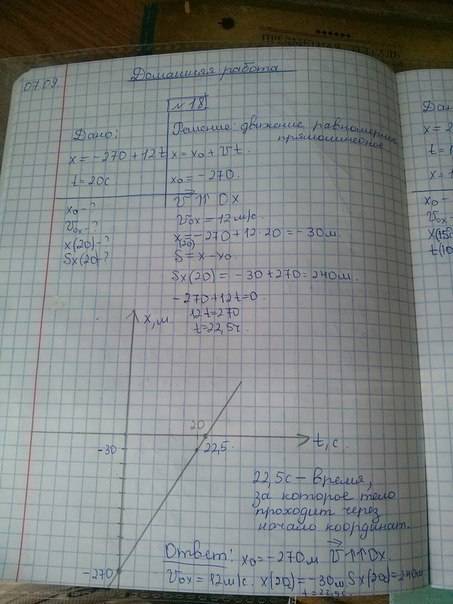 07.09.
Домашняя работа
№18
Дано:
x = -270 + 12t
t = 20с
x₀ - ?
V₀ₓ - ?
x(20) - ?
Sx(20) - ?
Решение: движение равномерное
прямолинейное
x = x₀ + Vt.
x₀ = -270.
V ↑↑ Ox
V₀ₓ = 12 м/с
x(20) = -270 + 12·20 = -30м.
S = x - x₀
Sx(20) = -30 + 270 = 240м.
-270 + 12t = 0.
12t = 270
t = 22,5с.
x, м
20
t, с.
22,5.
-30
-270
22,5с – время,
за которое тело
проходит через
начало координат.
Ответ: x₀ = -270м V ↑↑ Ox.
V₀ₓ = 12м/с. x(20) = -30м Sx(20) = 240м
t = 22,5с.
Дано
x = 2
t = 1
x = 1
x₀ - ?
V₀ₓ -